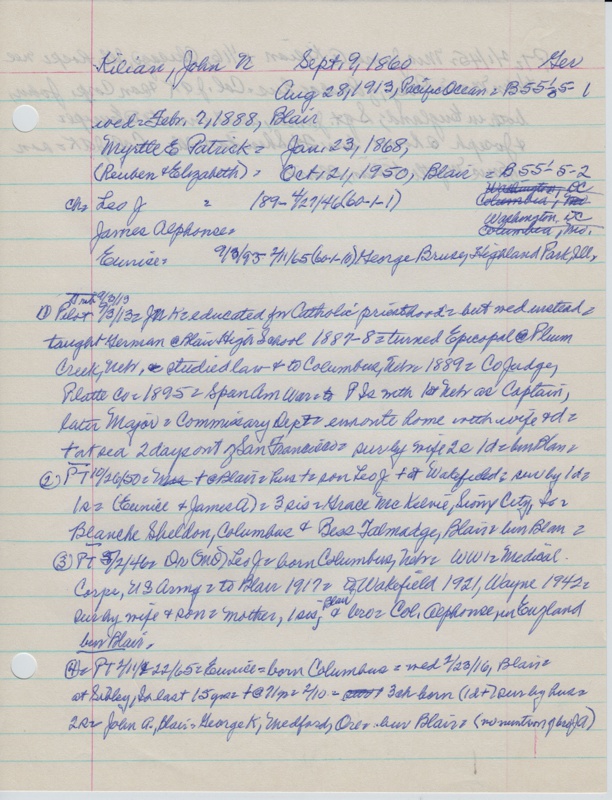 Kilian, John N Sept 9, 1860 Ger
Aug 28, 1913, Pacific Ocean = B 55-5-1
wed = Febr. 7, 1888, Blair
Myrtle E. Patrick = Jan. 23, 1868,
(Reuben & Elizabeth) = Oct. 21, 1950, Blair = B 55-5-2
ch = Leo J = 189- 4/27/46 (60-1-1) Washington, DC
Columbia, Mo
James Alphonse = Washington, DC
Columbia, Mo.
Eunice = 9/3/93 2/11/65 (60-1-10) George Bruse, Highland Park, Ill.
Trib 9/3/13
① Pilot 9/3/13 = JNK = educated for Catholic priesthood = but wed instead =
taught German @ Blair High School 1887-8 = turned Episcopal @ Plum
Creek, Nebr, studied law & to Columbus, Nebr 1889 = Co Judge,
Platte Co = 1895 = Span Am War = to P Is with 1st Nebr as Captain,
later Major = Commissary Dept = enroute home with wife & d =
† at sea 2 days out of San Francisco = sur by wife 2s 1d = bur Blair =
② PT 10/26/50 = † @ Blair = hus & son Leo J † @ Wakefield = sur by 1d =
1s = (Eunice & James A) = 3 sis = Grace McKelvie, Sioux City, Ia =
Blanche Sheldon, Columbus & Bess Talmadge, Blair = bur Blair =
③ PT 5/2/46 = Dr (MD) Leo J = born Columbus, Nebr = WW1 = Medical
Corps, US Army = to Blair 1917 = to Wakefield 1921, Wayne 1942 =
sur by wife & son = mother, 1 sis, Blair & bro = Col. Alphonse, in England
bur Blair.
④ = PT 2/11 & 22/65 = Eunice = born Columbus = wed 2/23/16, Blair =
at Sibley, Ia last 15 yrs = † @ 71 = 2/10 = 3 ch born (1d †) sur by hus =
2s = John A., Blair = George K, Medford, Ore = bur Blair = (no mention of bro J A)